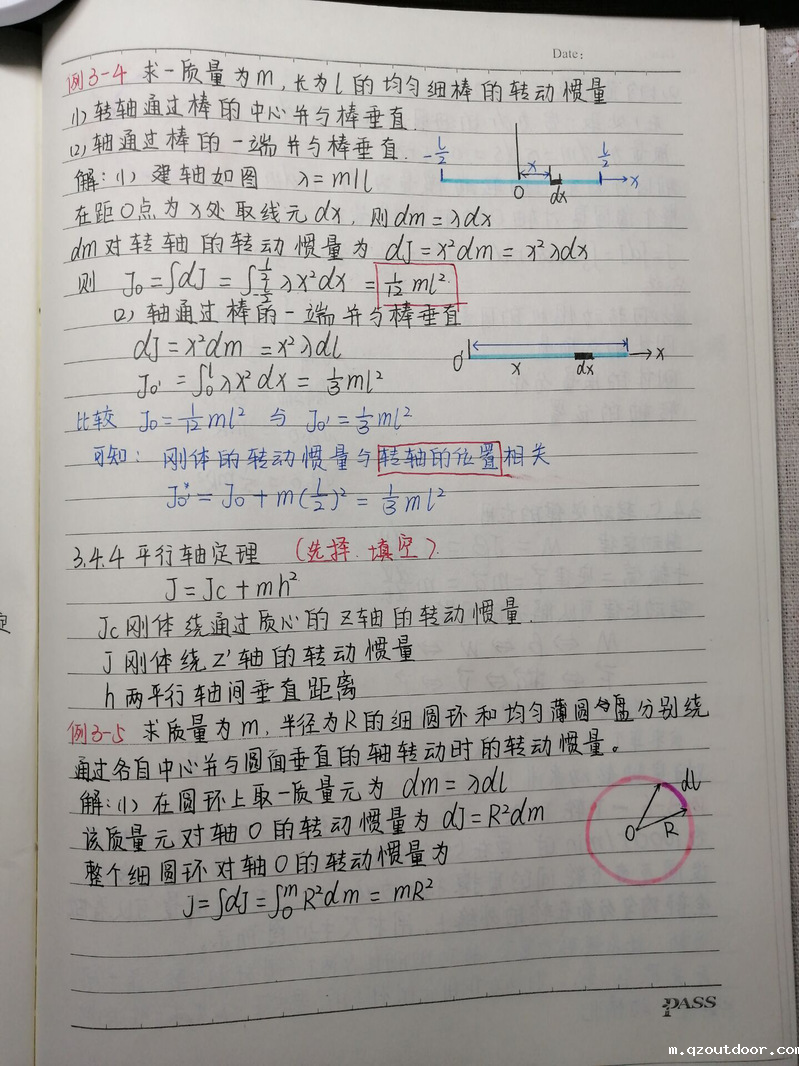 Date:
例3-4 求一质量为m,长为l的均匀细棒的转动惯量
(1)转轴通过棒的中心并与棒垂直.
(2)轴通过棒的一端并与棒垂直.
-l/2 x l/2
O dx x
解:(1)建轴如图 λ=m/l
在距O点为x处取线元dx,则dm=λdx
dm对转轴的转动惯量为 dJ=x²dm=x²λdx
则 J₀=∫dJ=∫_{-l/2}^{l/2}λx²dx=1/12ml².
(2)轴通过棒的一端并与棒垂直
dJ=x²dm=x²λdl
O' x dx x
J₀'=∫₀ˡλx²dx=1/3ml²
比较 J₀=1/12ml² 与 J₀'=1/3ml²
可知: 刚体的转动惯量与转轴的位置相关
J₀*=J₀+m(l/2)²=1/3ml²
3.4.4平行轴定理 (选择.填空).
J=Jc+mh²
Jc刚体绕通过质心的Z轴的转动惯量.
J刚体绕Z'轴的转动惯量
h两平行轴间垂直距离
例3-5 求质量为m,半径为R的细圆环和均匀薄圆盘分别绕
通过各自中心并与圆面垂直的轴转动时的转动惯量。
解:(1)在圆环上取一质量元为 dm=λdl
该质量元对轴O的转动惯量为dJ=R²dm
整个细圆环对轴O的转动惯量为
J=∫dJ=∫₀ᵐR²dm=mR²
dl
O R
PASS
m.qzoutdoor.com